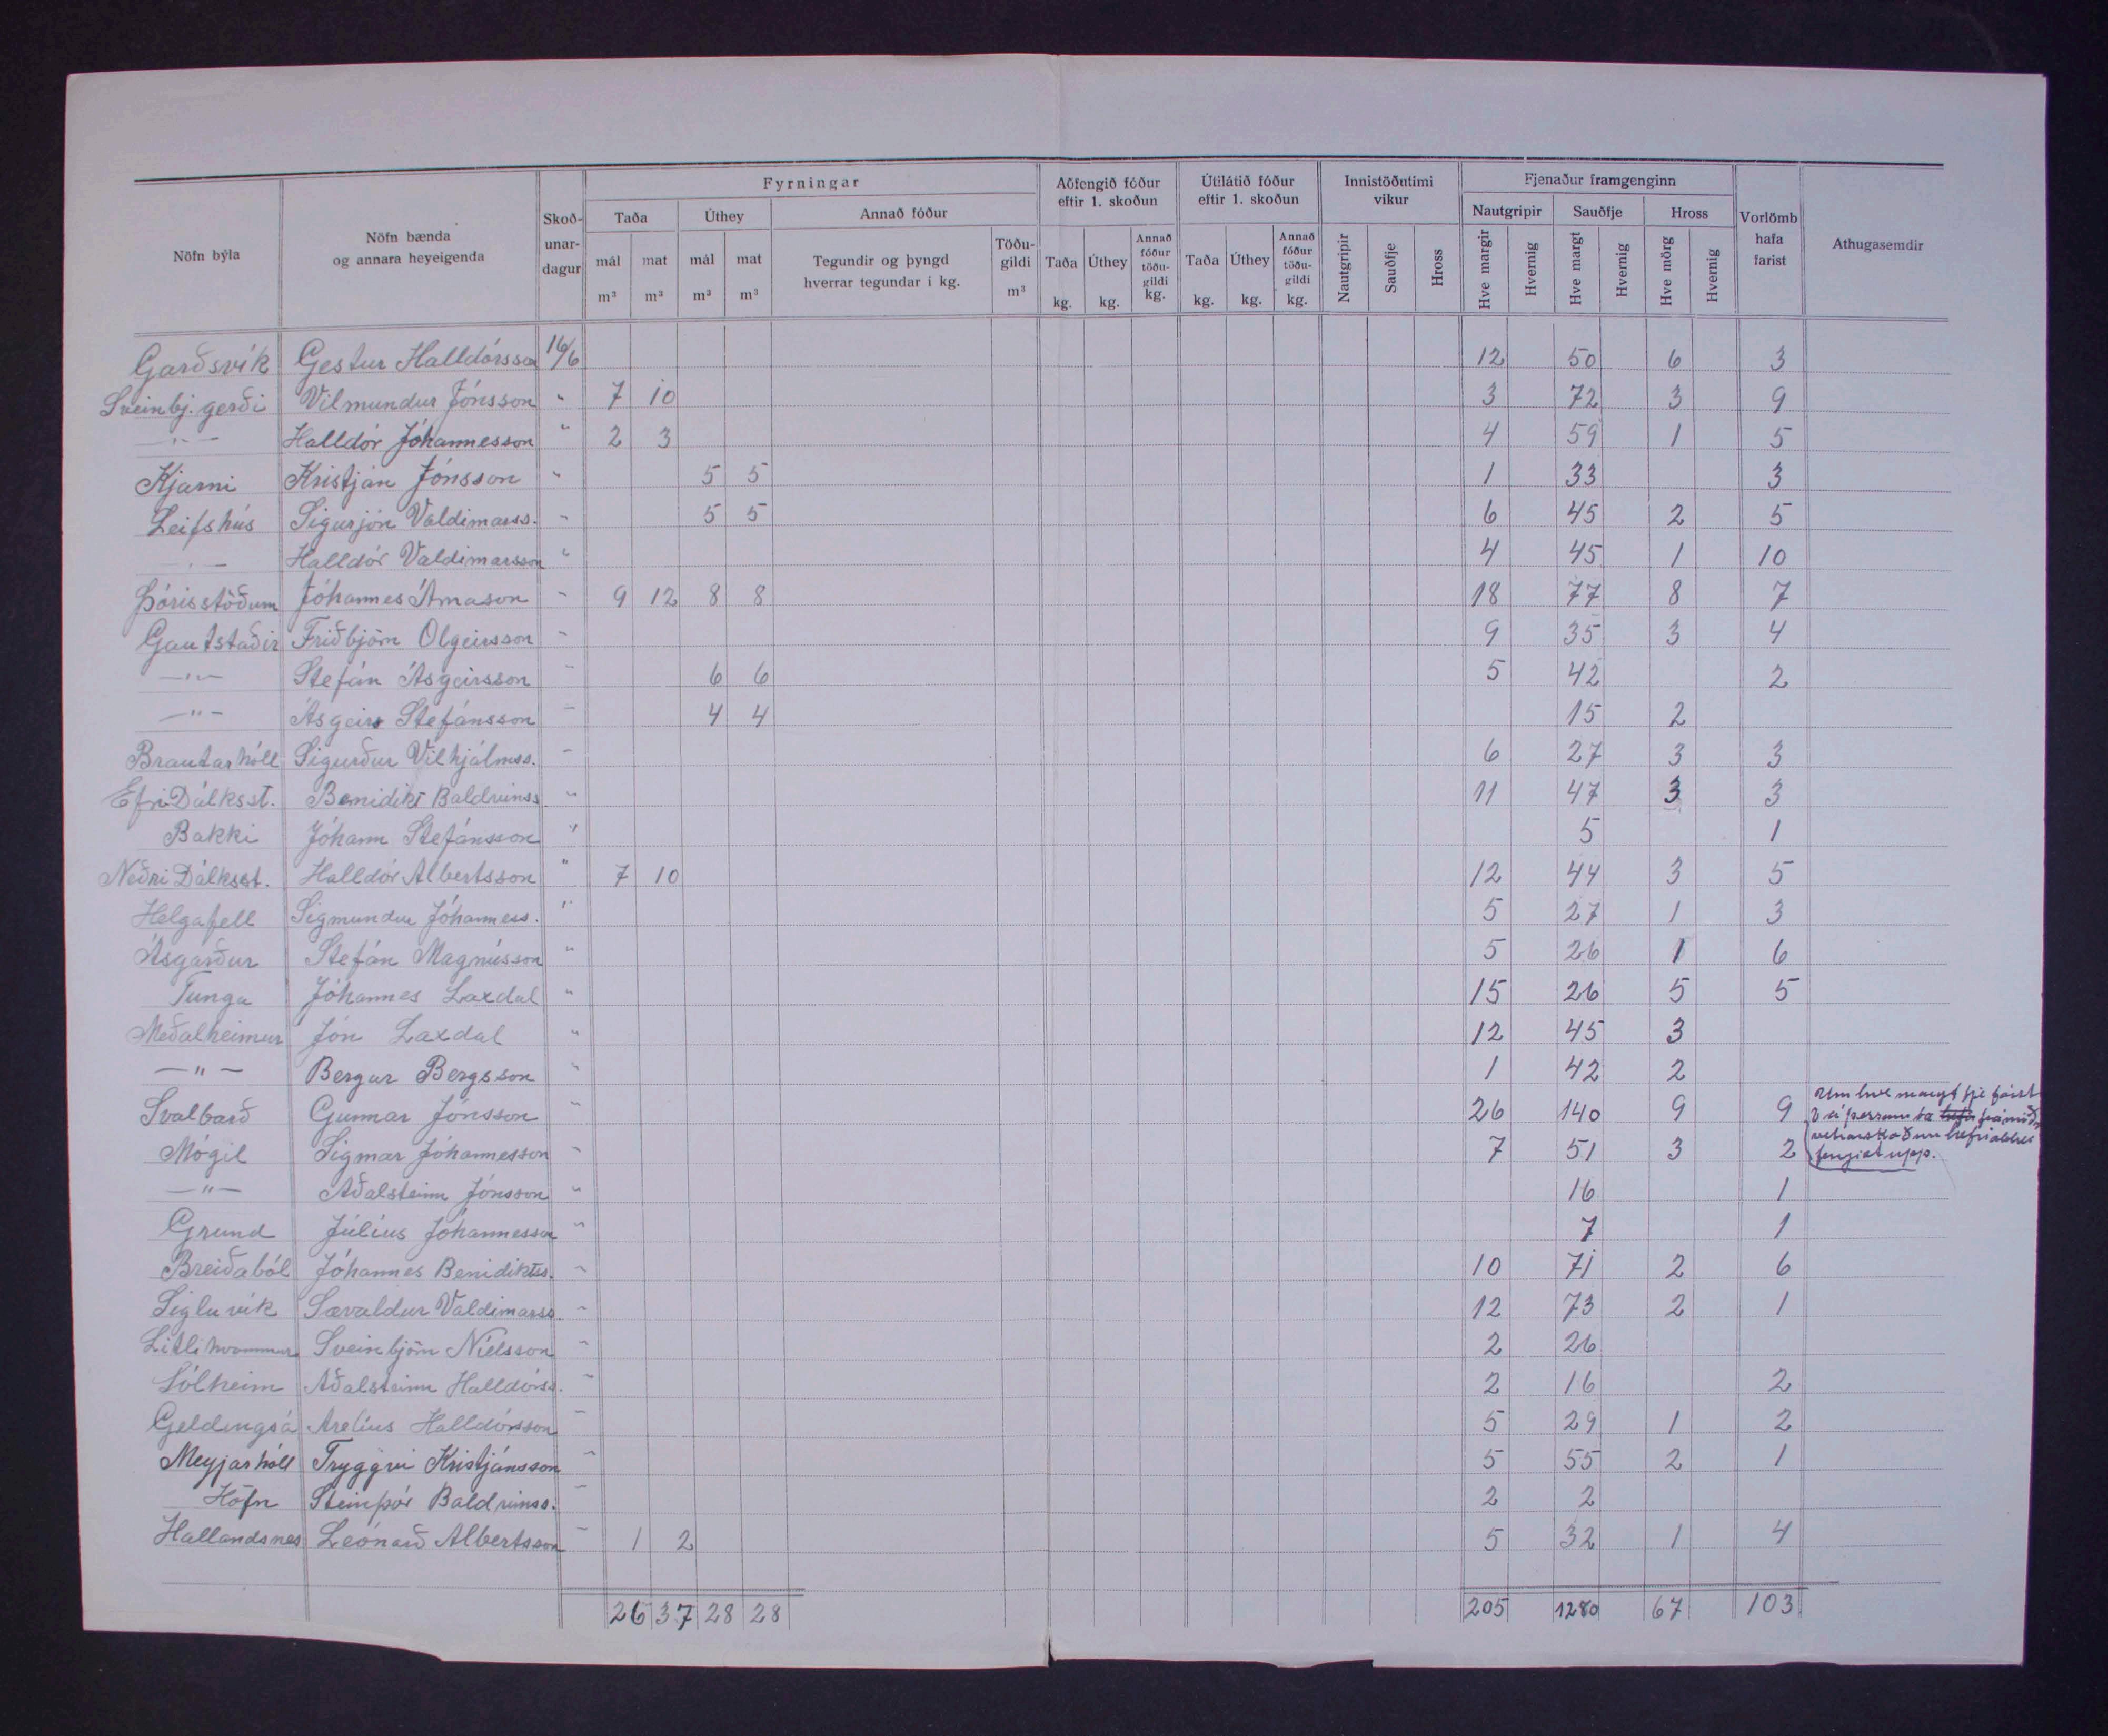 Fyrningar
Aðfengið fóður eftir 1. skoðun
Útilátið fóður eftir 1. skoðun
Innistöðutími vikur
Fjenaður framgenginn
Nöfn býla
Nöfn bænda og annara heyeigenda
Skoð-unar-dagur
Taða
Úthey
Annað fóður
Nautgripir
Sauðfje
Hross
Vorlömb hafa farist
Athugasemdir
mál m³
mat m³
mál m³
mat m³
Tegundir og þyngd hverrar tegundar í kg.
Töðu-gildi m³
Taða kg.
Úthey kg.
Annað fóður töðu-gildi kg.
Taða kg.
Úthey kg.
Annað fóður töðu-gildi kg.
Nautgripir
Sauðfje
Hross
Hve margir
Hvernig
Hve margt
Hvernig
Hve mörg
Hvernig
Garðsvík Gestur Halldórsson 16/6 12 50 6 3
Sveinbj. gerði Vilmundur Jónsson " 7 10 3 72 3 9
-"- Halldór Jóhannesson " 2 3 4 59 1 5
Kjarni Kristján Jónsson " 5 5 1 33 3
Leifshús Sigurjón Valdimarss. " 5 5 6 45 2 5
-"- Halldór Valdimarsson " 4 45 1 10
Þórisstöðum Jóhannes Árnason " 9 12 8 8 18 77 8 7
Gautstaðir Friðbjörn Olgeirsson " 9 35 3 4
-"- Stefán Ásgeirsson " 6 6 5 42 2
-"- Ásgeir Stefánsson " 4 4 15 2
Brautarhóll Sigurður Vilhjálmss. " 6 27 3 3
Efri Dálksst. Benidikt Baldvinss " 11 47 3 3
Bakki Jóhann Stefánsson " 5 1
Neðri Dálksst. Halldór Albertsson " 7 10 12 44 3 5
Helgafell Sigmundur Jóhanness. " 5 27 1 3
Ásgarður Stefán Magnússon " 5 26 1 6
Tunga Jóhannes Laxdal " 15 26 5 5
Meðalheimur Jón Laxdal " 12 45 3
-"- Bergur Bergsson " 1 42 2
Svalbarð Gunnar Jónsson " 26 140 9 9 Um hve margt fje farist
Mógil Sigmar Jóhannesson " 7 51 3 2 fengist upp.
-"- Aðalsteinn Jónsson " 16 1
Grund Júlíus Jóhannesson " 7 1
Breiðaból Jóhannes Benidiktss. " 10 71 2 6
Sigluvík Sævaldur Valdimarss " 12 73 2 1
Litlihvammur Sveinbjörn Níelsson " 2 26
Sólheim Aðalsteinn Halldórss. " 2 16 2
Geldingsá Arelíus Halldórsson " 5 29 1 2
Meyjarhóll Tryggvi Kristjánsson " 5 55 2 1
Höfn Steinþór Baldvinss. " 2 2
Hallandsnes Leónarð Albertsson " 1 2 5 32 1 4
26 37 28 28 205 1280 67 103